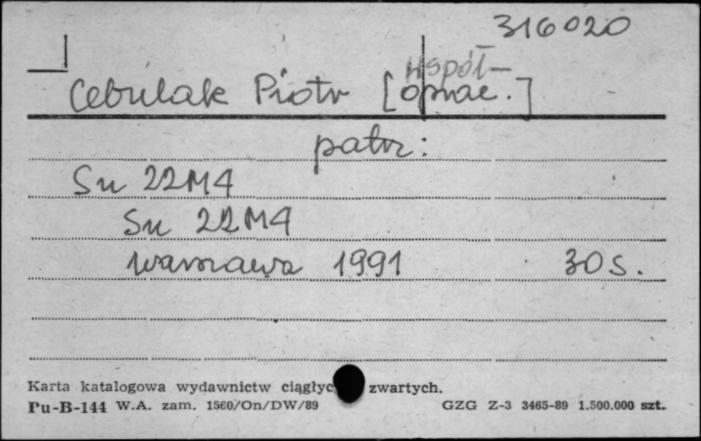 316020
Cebulak Piotr [współ-
oprac.]
patrz:
Su 22M4
Su 22M4
Warszawa 1991 30 s.
Karta katalogowa wydawnictw ciągłyc zwartych.
Pu-B-144 W.A. zam. 1560/On/DW/89 GZG Z-3 3465-89 1.500.000 szt.